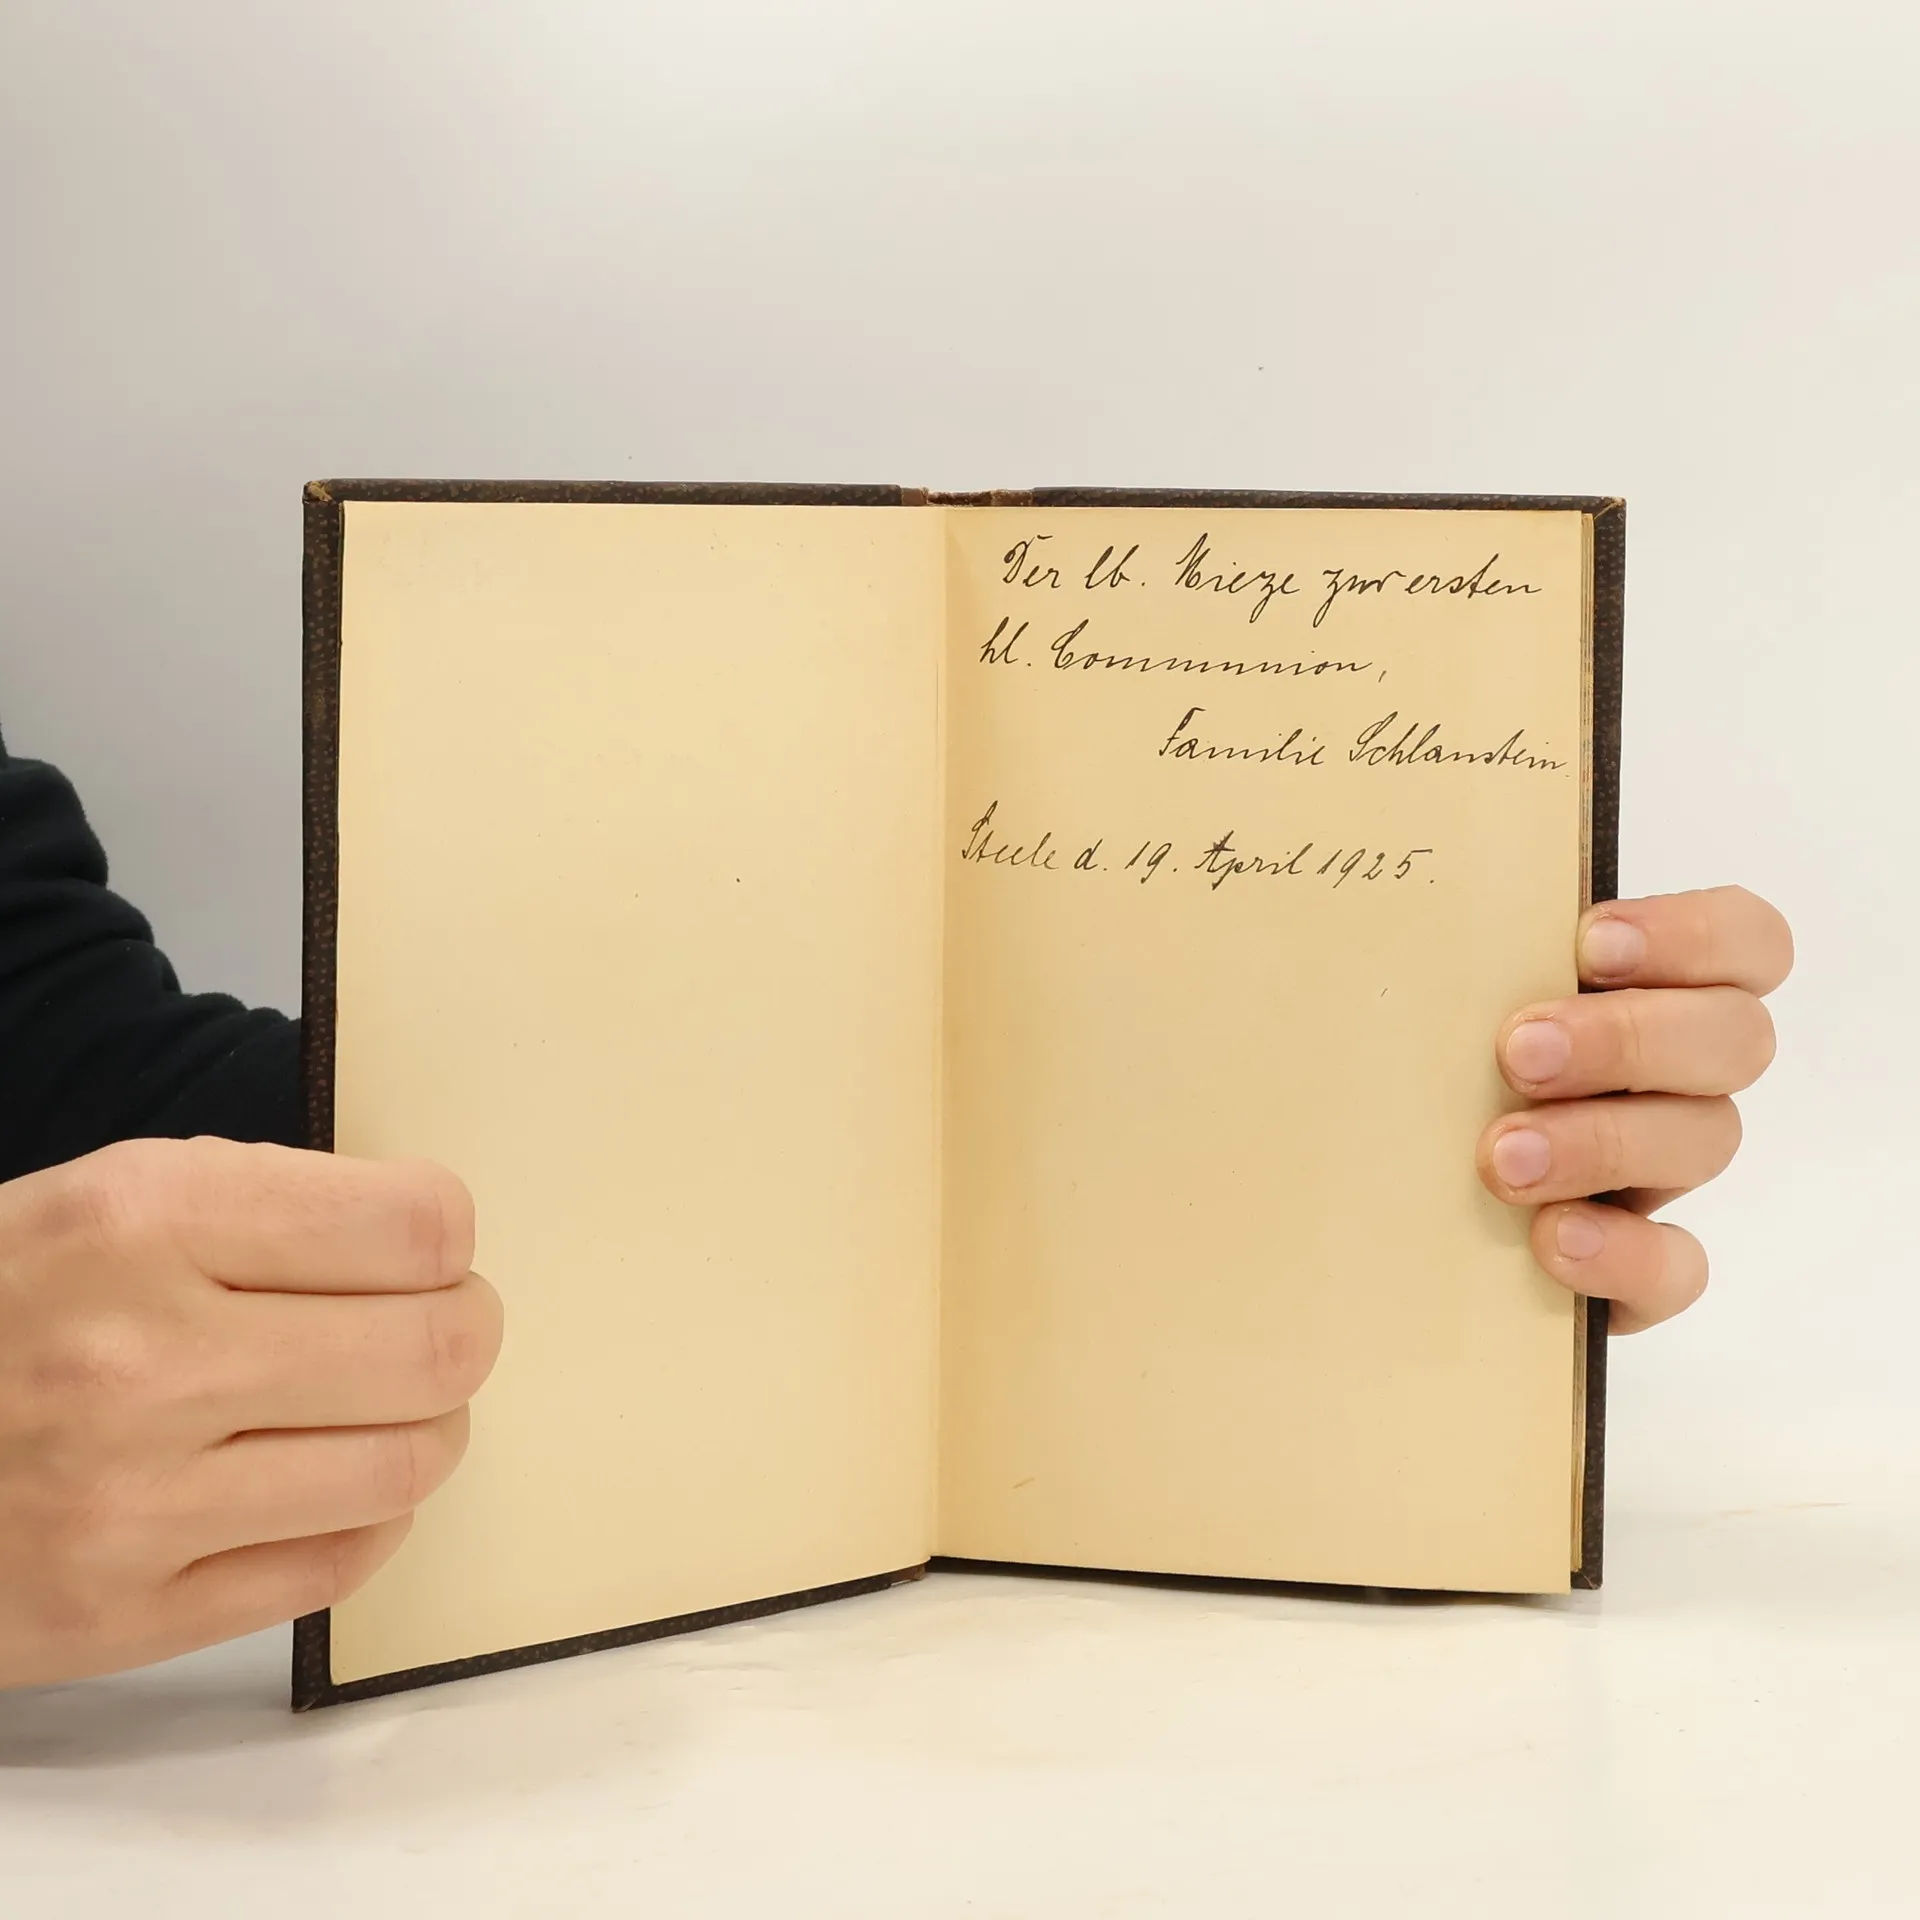 Der lb. Mieze zur ersten
hl. Communion,
Familie Schlanstein.
Steele d. 19. April 1925.